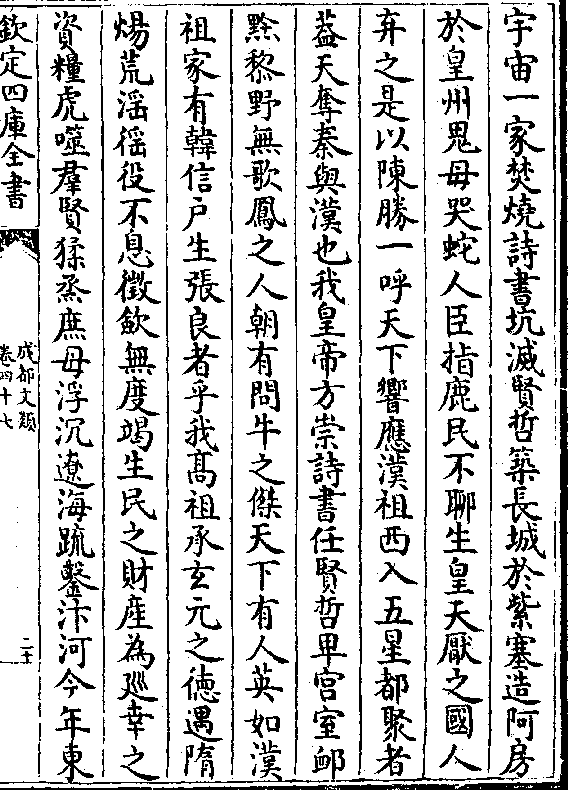 宇宙一家焚燒詩書坑滅賢哲築長城於紫塞造阿房
於皇州鬼母哭蛇人臣指鹿民不聊生皇天厭之國人
弃之是以陳勝一呼天下響應漢祖西入五星都聚者
葢天奪秦與漢也我皇帝方崇詩書任賢哲卑宮室卹
黔黎野無歌鳳之人朝有問牛之傑天下有人英如漢
祖家有韓信户生張良者乎我髙祖承玄元之徳遇隋
煬荒滛徭役不息徴歛無度竭生民之財産為廵幸之
資糧虎噬羣賢猱烝庶母浮沉遼海疏鑿汴河今年東
欽定四庫全書
成都文類
卷四十七
二十